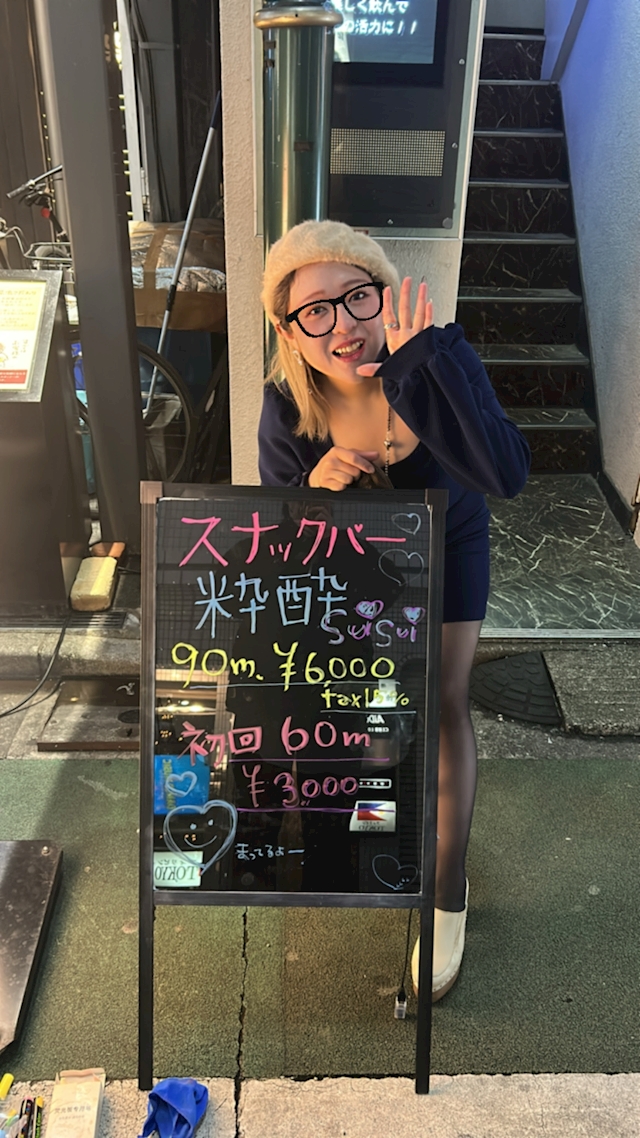 しく飲んで
の活力に!!
スナックバー
粋酔
SuiSui
90m. ¥6,000
tax10%
初回 60m
¥3,000
まってるよー
LOKIO